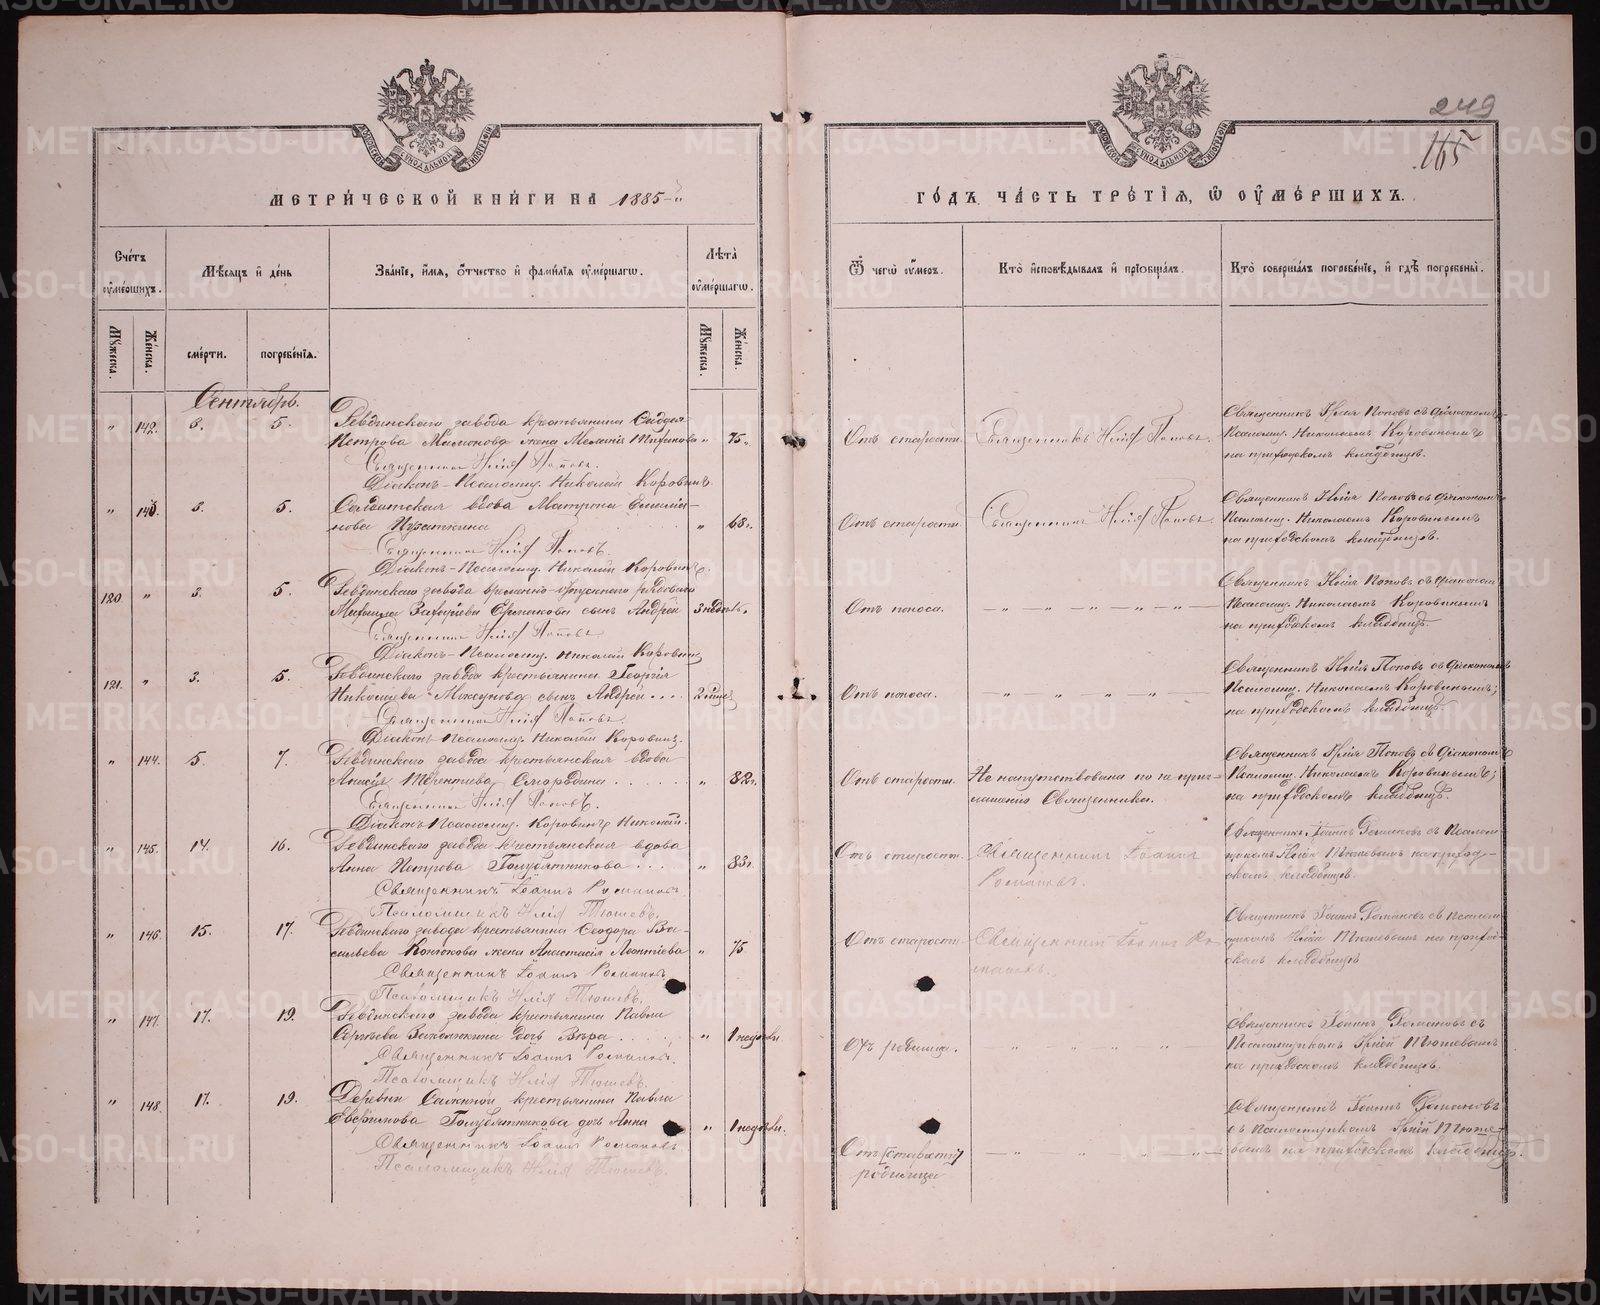 249
165
МЕТРИЧЕСКОЙ КНИГИ НА 1885-й
ГОДЪ, ЧАСТЬ ТРЕТІЯ, Ѿ ОУМЕРШИХЪ.
Счетъ оумершихъ.
Мѣсяцъ и день
Званіе, имя, отчество и фамилія оумершагѡ.
Лѣта оумершагѡ.
Ѿ чегѡ оумеръ.
Кто исповѣдывалъ и пріобщалъ.
Кто совершалъ погребеніе, и гдѣ погребены.
Мужеска.
Женска.
смерти.
погребенія.
Мужеска.
Женска.
Сентябрь.
" 142. 3. 5. Ревдинскаго завода крестьянина
Петрова Мамонова жена Меланія " 75. Отъ старости. Священникъ Илія Поповъ.
Священникъ Илія Поповъ съ діакономъ
Псаломщ. Николаемъ Коровинымъ
на приходскомъ кладбищѣ.
Священникъ Илія Поповъ.
Діаконъ-Псаломщ. Николай Коровинъ.
" 143. 3. 5. Солдатская вдова Матрона
нова " 68 г. Отъ старости. Священникъ Илія Поповъ.
Священникъ Илія Поповъ съ діакономъ
Псаломщ. Николаемъ Коровинымъ
на приходскомъ кладбищѣ.
Священникъ Илія Поповъ.
Діаконъ-Псаломщ. Николай Коровинъ.
120 " 3. 5. Ревдинскаго завода временно-отпускнаго рядоваго
Михаила Захарова Ермакова сынъ Андрей 3 недѣль. Отъ поноса. — " — " — " — " —
Священникъ Илія Поповъ съ діакономъ
Псаломщ. Николаемъ Коровинымъ
на приходскомъ кладбищѣ.
Священникъ Илія Поповъ.
Діаконъ-Псаломщ. Николай Коровинъ
121. " 3. 5. Ревдинскаго завода крестьянина Георгія
Николаева сынъ Андрей . . . Отъ поноса. " " " "
Священникъ Илія Поповъ съ діакономъ
Псаломщ. Николаемъ Коровинымъ;
на приходскомъ кладбищѣ.
Священникъ Илія Поповъ.
Діаконъ Псаломщ. Николай Коровинъ.
" 144. 5. 7. Ревдинскаго завода крестьянская вдова
Анисія " 82 г. Отъ старости. Не напутствована по не приг-
лашенію Священника.
Священникъ Илія Поповъ съ діакономъ
Псаломщ. Николаемъ Коровинымъ;
на приходскомъ кладбищѣ.
Священникъ Илія Поповъ.
Діаконъ Псаломщ. Коровинъ Николай.
" 145. 14. 16. Ревдинскаго завода крестьянская вдова
Анна Петрова Голубятникова . . . " 83 г. Отъ старости. Священникъ Іоаннъ
Романовъ.
Священникъ Іоаннъ Романовъ съ Псалом
щикомъ Иліей Тюшевымъ на приход-
скомъ кладбищѣ.
Священникъ Іоаннъ Романовъ
Псаломщикъ Илія Тюшевъ.
" 146. 15. 17. Ревдинскаго завода крестьянина Ѳеодора Ва-
сильева жена Анастасія Леонтіева " 75 Отъ старости. Священникъ Іоаннъ Ро-
мановъ.
Священникъ Іоаннъ Романовъ съ Псалом
щикомъ Иліей Тюшевымъ на приход-
скомъ кладбищѣ
Священникъ Іоаннъ Романовъ
Псаломщикъ Илія Тюшевъ.
" 147. 17. 19. Ревдинскаго завода крестьянина Павла
Сергѣева дочь Вѣра . . . . " 1 недѣли. Отъ родимца. — " " " " —
Священникъ Іоаннъ Романовъ съ
Псаломщикомъ Иліей Тюшевымъ
на приходскомъ кладбищѣ.
Священникъ Іоаннъ Романовъ.
Псаломщикъ Илія Тюшевъ.
" 148. 17. 19. Деревни крестьянина Павла
Голубятникова дочь Анна " 1 недѣли. Отъ [старости]
родимца — " " " " —
Священникъ Іоаннъ Романовъ
съ Псаломщикомъ Иліей Тюше-
вымъ на приходскомъ кладбищѣ.
Священникъ Іоаннъ Романовъ
Псаломщикъ Илія Тюшевъ.
METRIKI.GASO-URAL.RU